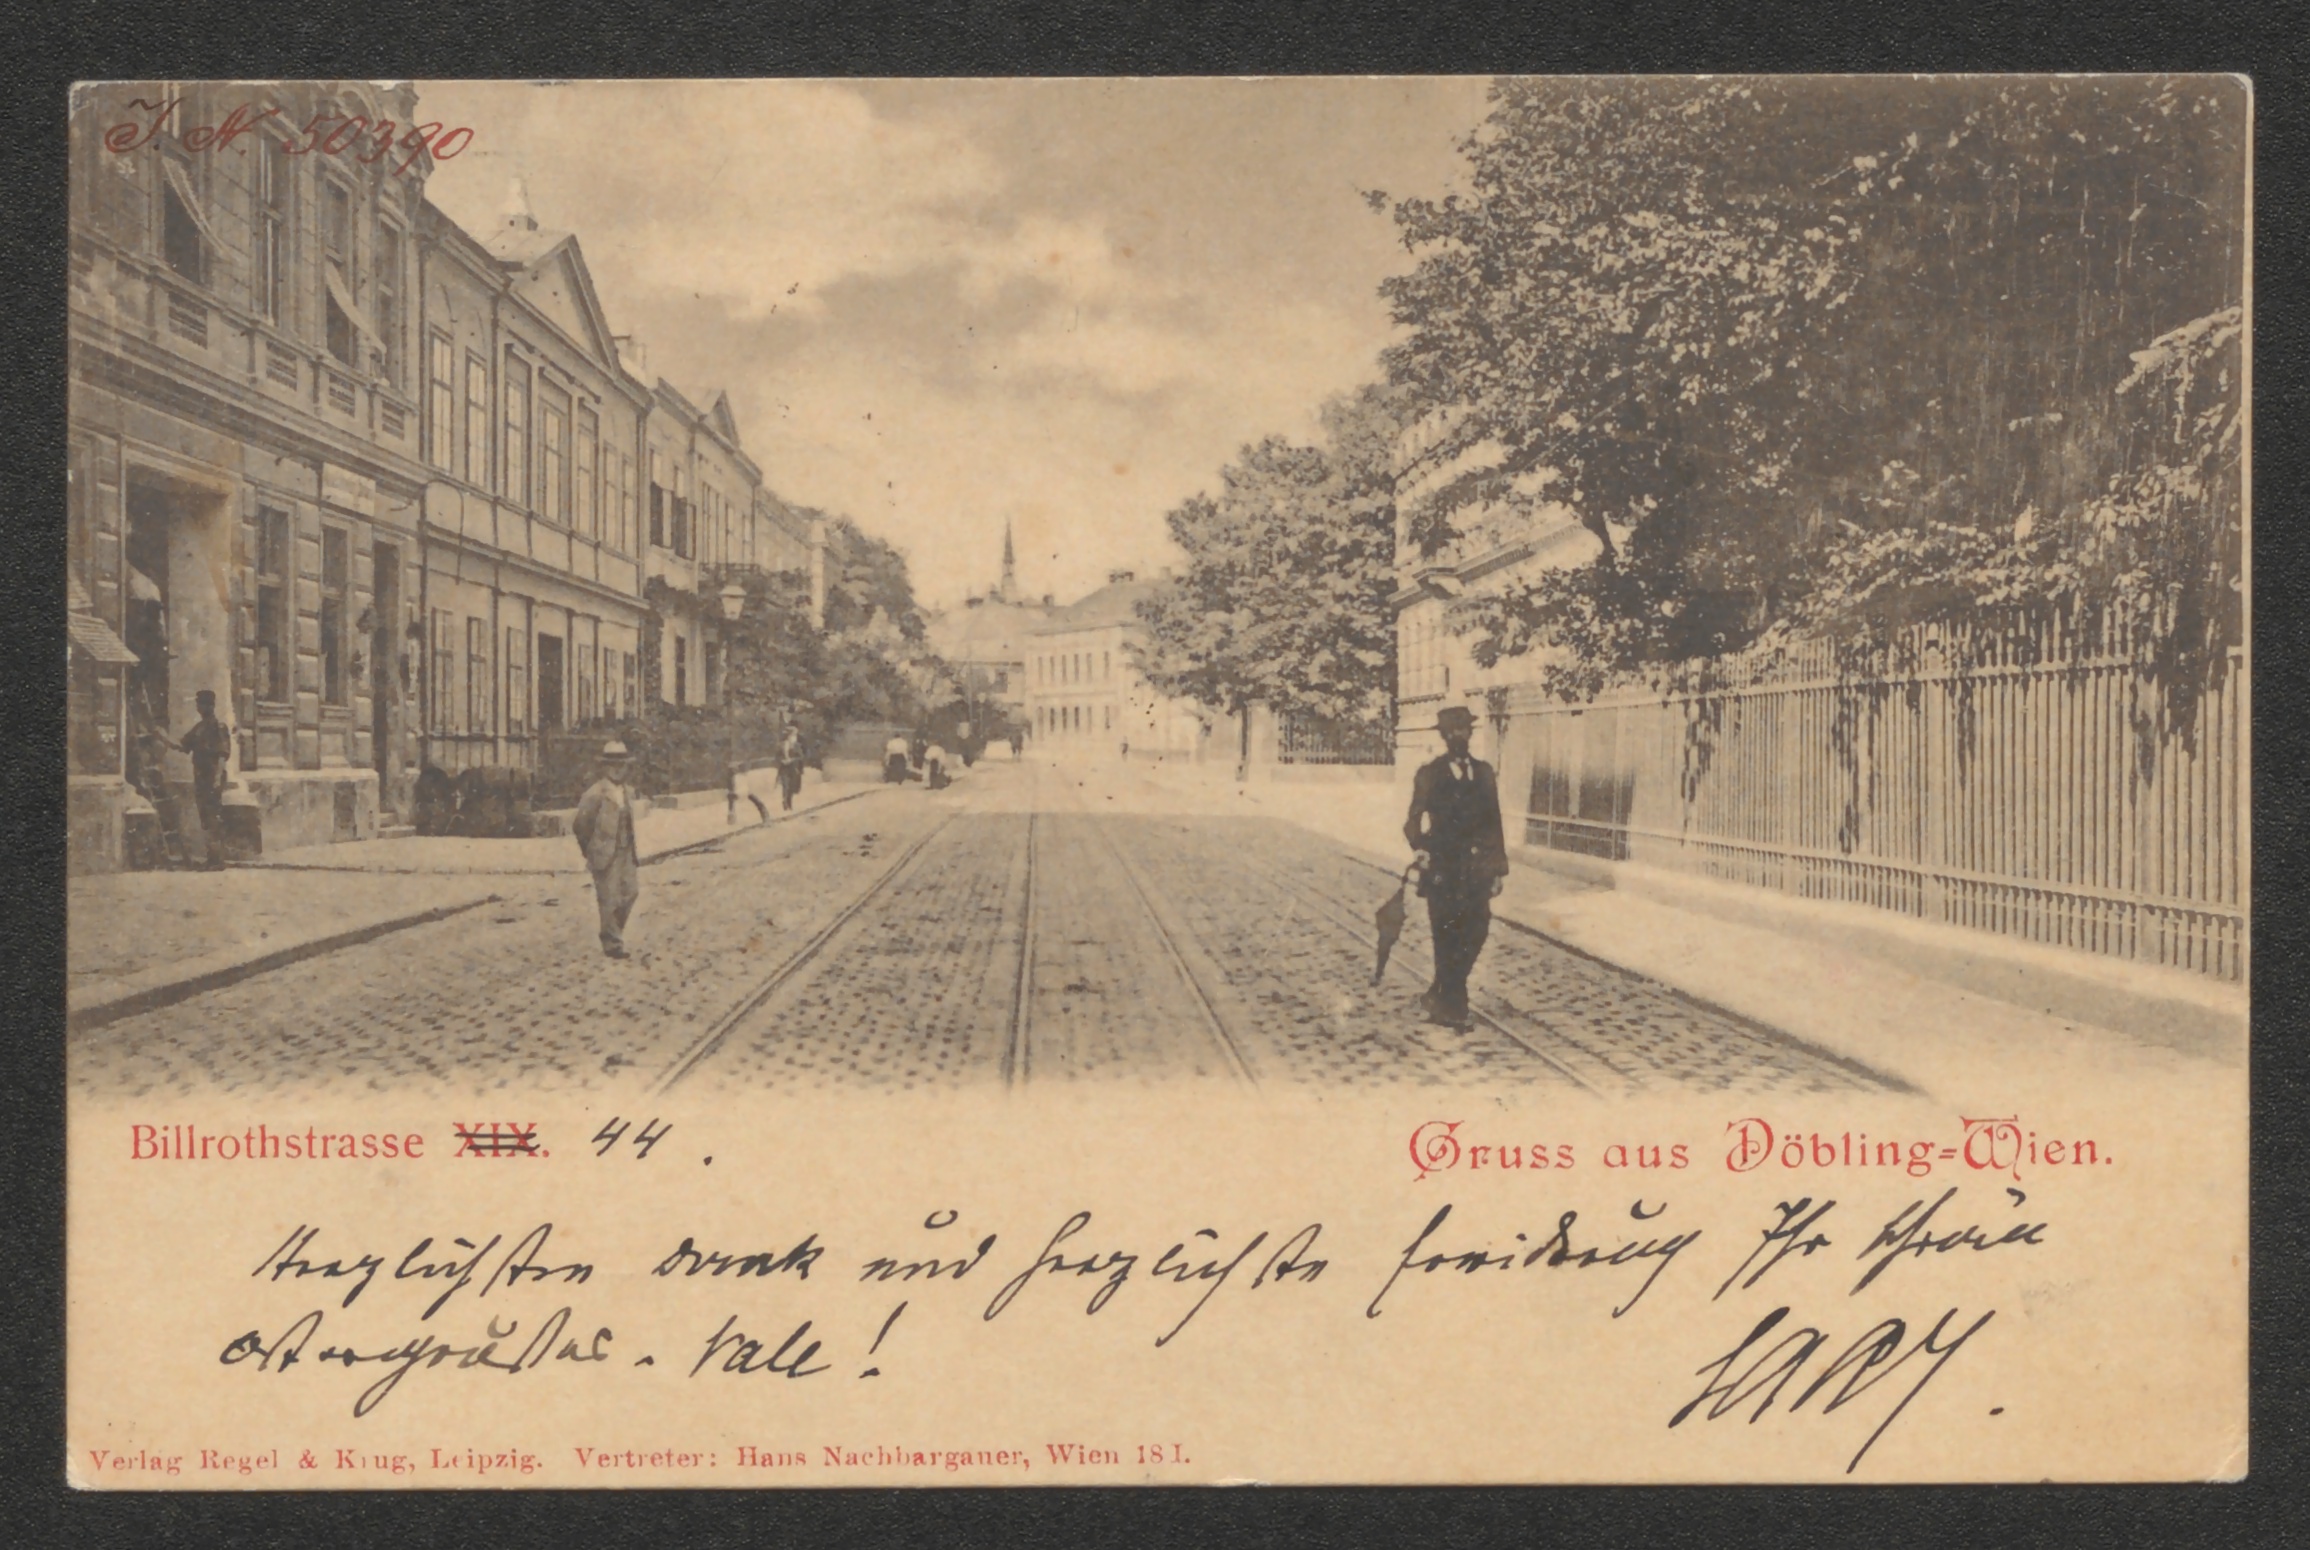 J. N. 50390
Billrothstrasse XIX. 44.
Gruss aus Döbling=Wien.
Herzlichsten Dank und herzlichste Erwiderung Ihr
Ostergrüsse. Vale!
Verlag Regel & Krug, Leipzig. Vertreter: Hans Nachbargauer, Wien 18 I.